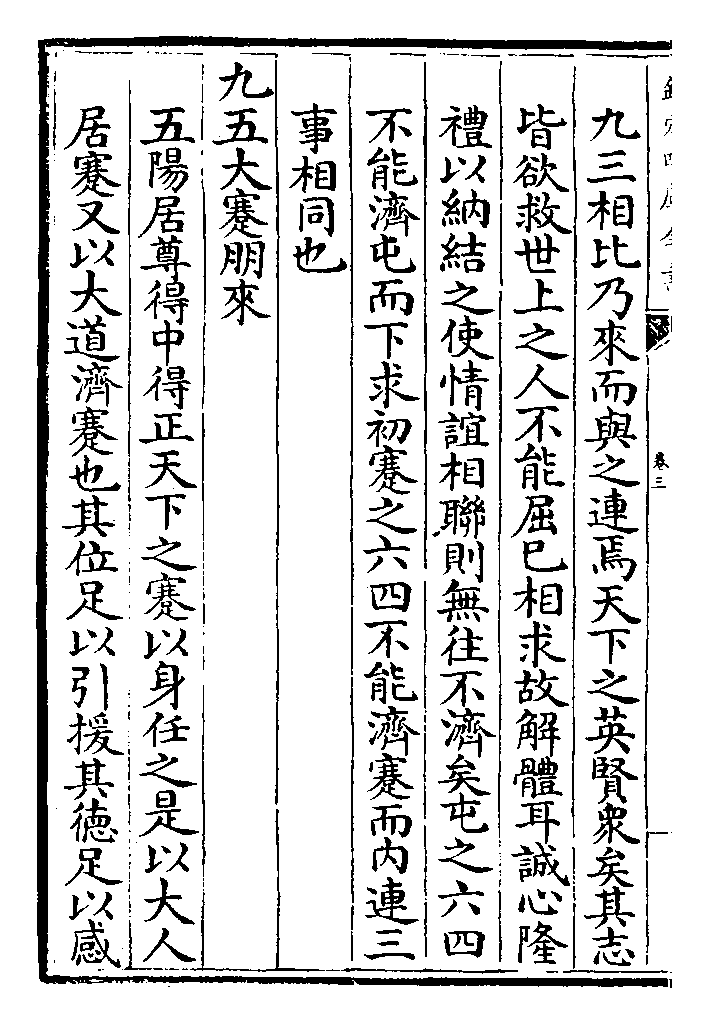 欽定四庫全書
卷三
九三相比乃來而與之連焉天下之英賢衆矣其志
皆欲救世上之人不能屈已相求故解體耳誠心隆
禮以納結之使情誼相聯則無往不濟矣屯之六四
不能濟屯而下求初蹇之六四不能濟蹇而内連三
事相同也
九五大蹇朋來
五陽居尊得中得正天下之蹇以身任之是以大人
居蹇又以大道濟蹇也其位足以引援其德足以感